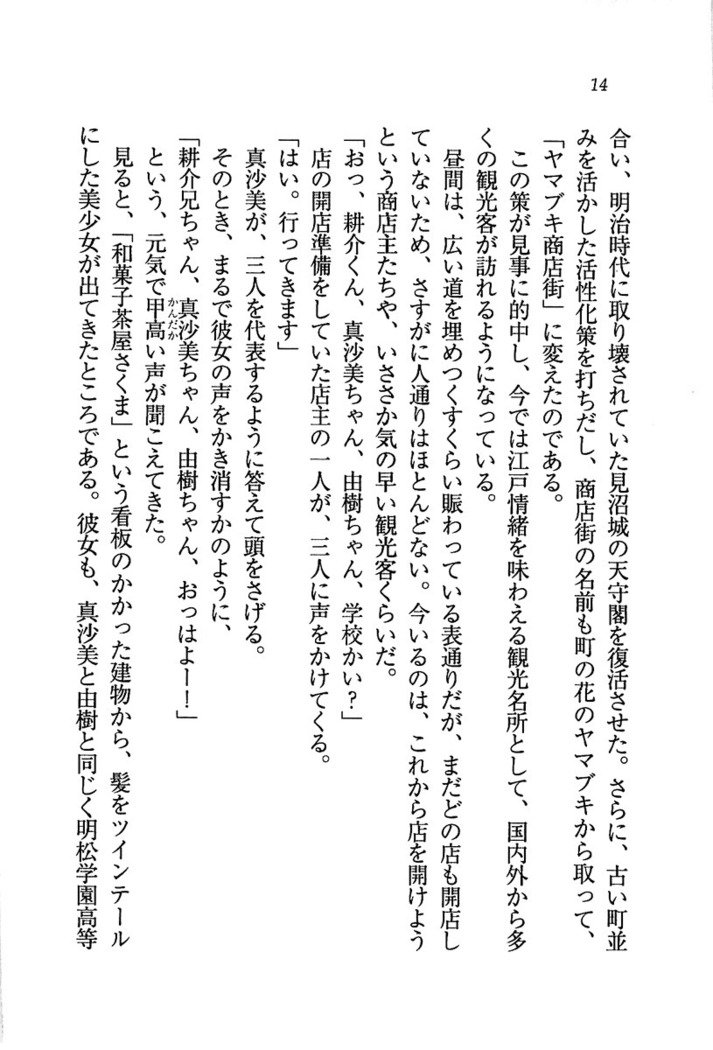 14
合い、明治時代に取り壊されていた見沼城の天守閣を復活させた。さらに、古い町並
みを活かした活性化策を打ちだし、商店街の名前も町の花のヤマブキから取って、
「ヤマブキ商店街」に変えたのである。
この策が見事に的中し、今では江戸情緒を味わえる観光名所として、国内外から多
くの観光客が訪れるようになっている。
昼間は、広い道を埋めつくすくらい賑わっている表通りだが、まだどの店も開店し
ていないため、さすがに人通りはほとんどない。今いるのは、これから店を開けよう
という商店主たちや、いささか気の早い観光客くらいだ。
「おっ、耕介くん、真沙美ちゃん、由樹ちゃん、学校かい？」
店の開店準備をしていた店主の一人が、三人に声をかけてくる。
「はい。行ってきます」
真沙美が、三人を代表するように答えて頭をさげる。
そのとき、まるで彼女の声をかき消すかのように、
「耕介兄ちゃん、真沙美ちゃん、由樹ちゃん、おっはよー！」
という、元気で甲高い声が聞こえてきた。
かんだか
見ると、「和菓子茶屋さくま」という看板のかかった建物から、髪をツインテール
にした美少女が出てきたところである。彼女も、真沙美と由樹と同じく明松学園高等